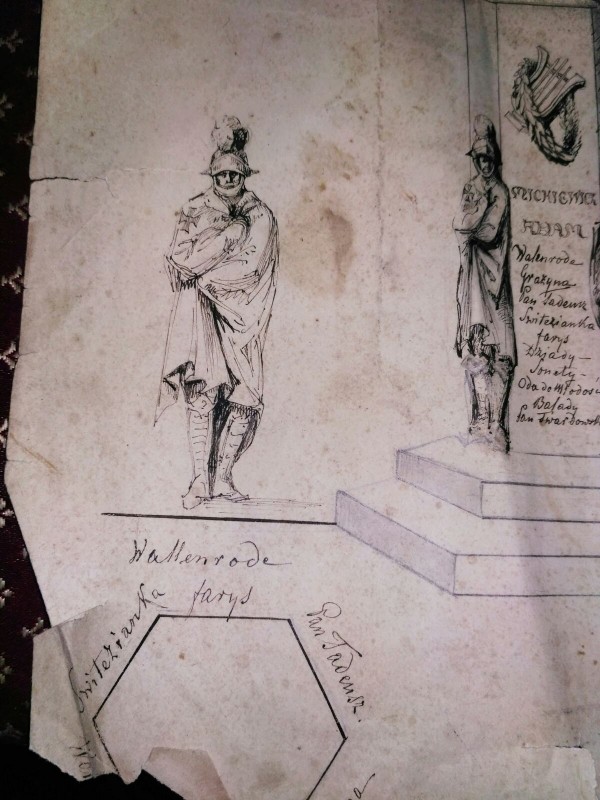 MICKIEWICZ
ADAM
Wallenrode
Grażyna
Pan Tadeusz
Świtezianka
farys
Dziady –
Sonety –
Oda do Młodości
Balady
Pan Twardowski
Wallenrode
farys
Świtezianka
Pan Tadeusz.